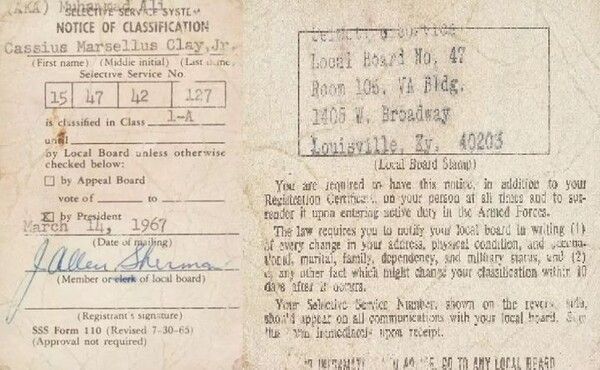 (AKA) Muhammad Ali
SELECTIVE SERVICE SYSTEM
NOTICE OF CLASSIFICATION
Cassius Marsellus Clay, Jr.
(First name) (Middle initial) (Last name)
Selective Service No.
15 47 42 127
is classified in Class 1-A
until
by Local Board unless otherwise
checked below:
by Appeal Board
vote of to
X by President
March 14, 1967
(Date of mailing)
J Allen Sherman
(Member or clerk of local board)
(Registrant's signature)
SSS Form 110 (Revised 7-30-65)
(Approval not required)
Selective Service
Local Board No. 47
Room 106, VA Bldg.
1405 W. Broadway
Louisville, Ky. 40203
(Local Board Stamp)
You are required to have this notice, in addition to your
Registration Certificate, on your person at all times and to sur-
render it upon entering active duty in the Armed Forces.
The law requires you to notify your local board in writing (1)
of every change in your address, physical condition, and occupa-
tional, marital, family, dependency, and military status, and (2)
of any other fact which might change your classification within 10
days after it occurs.
Your Selective Service Number, shown on the reverse side,
should appear on all communications with your local board. Sign
this form immediately upon receipt.
GO TO ANY LOCAL BOARD